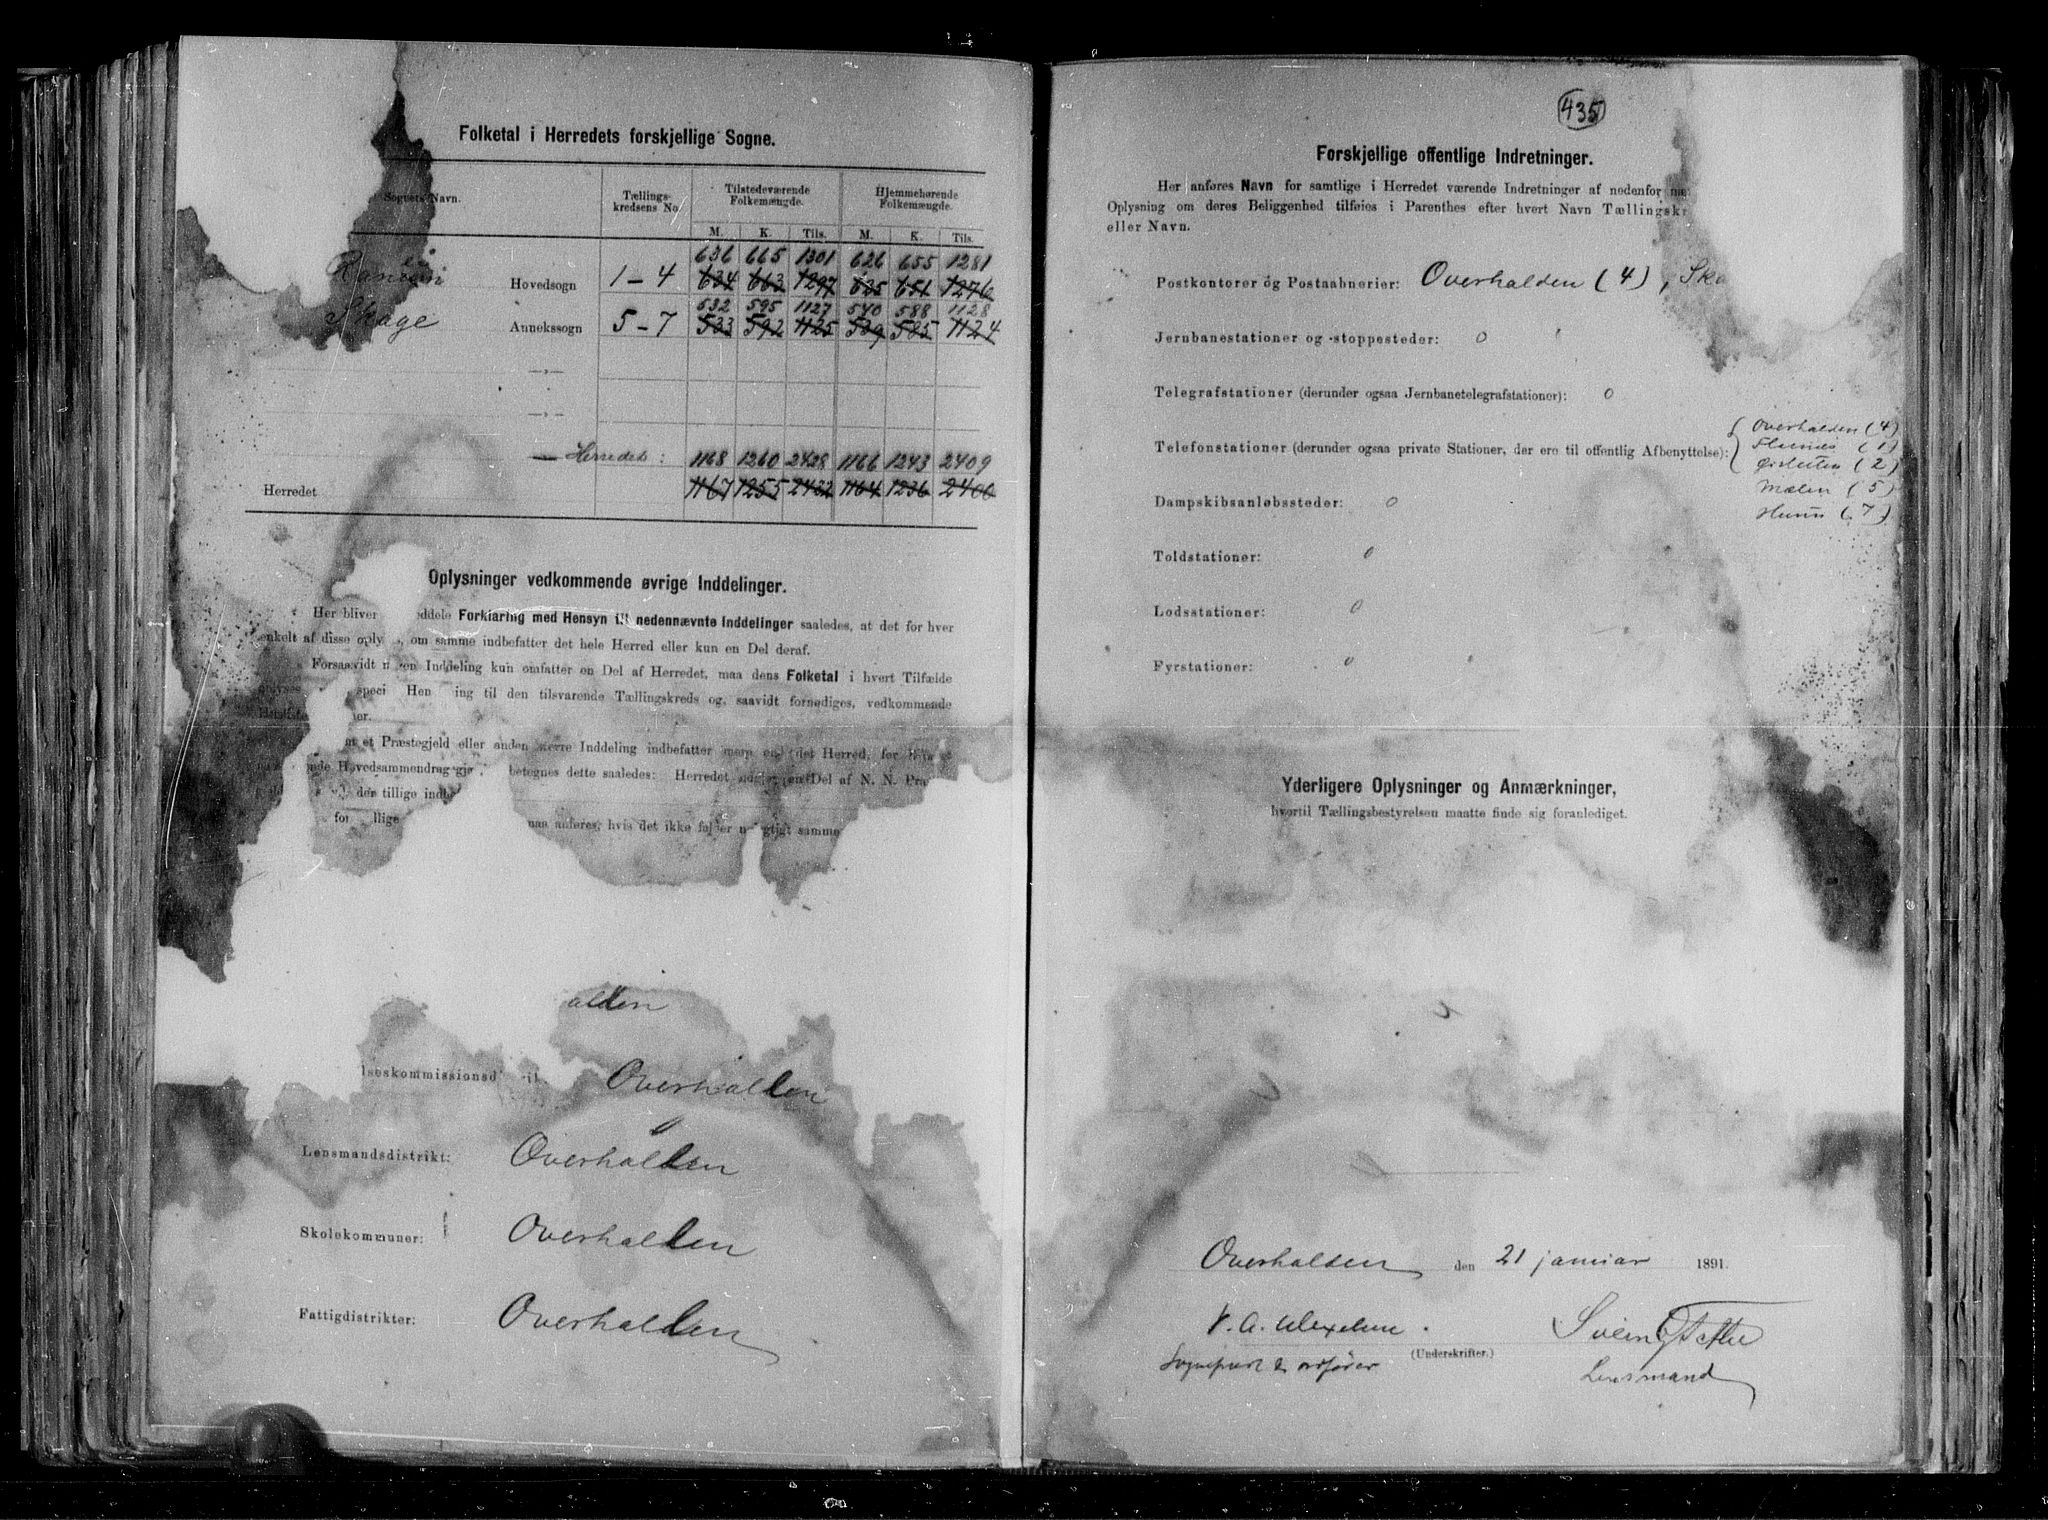 Folketal i Herredets forskjellige Sogne.
Sognets Navn.
Tællings-
kredsens No
Tilstedeværende
Folkemængde.
Hjemmehørende
Folkemængde.
M. K. Tils. M. K. Tils.
636 665 1301 626 655 1281
Ranem Hovedsogn 1-4 634 663 1297 625 651 1276
532 595 1127 540 588 1128
Skage Annekssogn 5-7 533 592 1125 539 585 1124
—»—
—»—
Herredet: 1168 1260 2428 1166 1243 2409
Herredet 1167 1255 2422 1164 1236 2400
Oplysninger vedkommende øvrige Inddelinger.
Her bliver ddele Forklaring med Hensyn til nedennævnte Inddelinger saaledes, at det for hver
enkelt af disse oply om samme indbefatter det hele Herred eller kun en Del deraf.
Forsaavidt n en Inddeling kun omfatter en Del af Herredet, maa dens Folketal i hvert Tilfælde
oplyse speci Hen ing til den tilsvarende Tællingskreds og, saavidt fornødiges, vedkommende
ner.
m et Præstegjeld eller anden større Inddeling indbefatter mere end det Herred, for
nde Hovedsammendrag gj betegnes dette saaledes: Herredet udgjør en Del af N. N. Præ
der tillige indb
for llige maa anføres, hvis det ikke falder n gtigt samme
alden
lseskommissionsd
Overhalden
0
Lensmandsdistrikt: Overhalden
Skolekommuner: Overhalden
Fattigdistrikter: Overhalden
435
Forskjellige offentlige Indretninger.
Her anføres Navn for samtlige i Herredet værende Indretninger af nedenfor næ
Oplysning om deres Beliggenhed tilføies i Parenthes efter hvert Navn Tællingskr
eller Navn.
Postkontorer og Postaabnerier: Overhalden (4), Ska
Jernbanestationer og -stoppesteder: 0
Telegrafstationer (derunder ogsaa Jernbanetelegrafstationer): 0
Telefonstationer (derunder ogsaa private Stationer, der ere til offentlig Afbenyttelse):
Overhalden (4)
(1)
(2)
Mælen (5)
Hunn (7)
Dampskibsanløbssteder: 0
Toldstationer: 0
Lodsstationer: 0
Fyrstationer: 0
Yderligere Oplysninger og Anmærkninger,
hvortil Tællingsbestyrelsen maatte finde sig foranlediget.
Overhalden den 21 januar 1891.
V. A. Wexelsen. Svein
(Underskrifter.)
Sogneprest & ordfører Lensmand